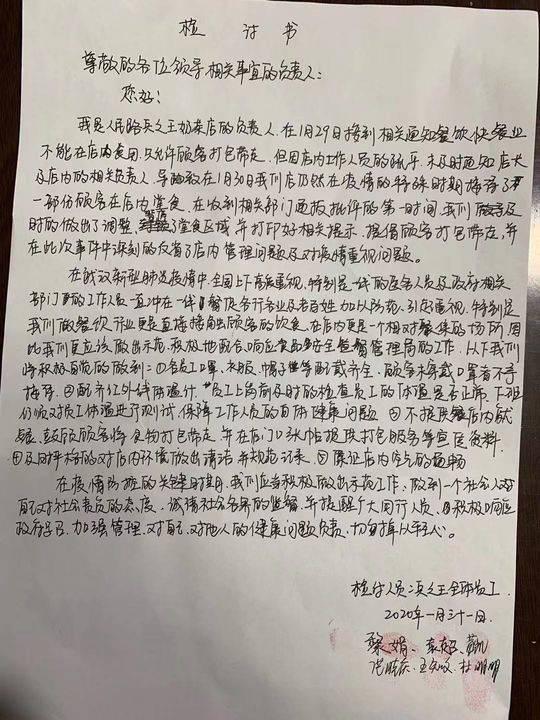 检 讨 书
尊敬的各位领导相关事宜的负责人：
您好！
我是人民路 之王奶茶店的负责人，在1月29日接到相关通知餐饮快餐业
不能在店内食用，只允许顾客打包带走，但因店内工作人员的疏乎，未及时通知店长
及店内的相关负责人，导致在1月30日我们店仍然在疫情的特殊时期接待了
一部份顾客在店内堂食，在收到相关部门通报批评的第一时间，我们 及
时的做出了调整， 了堂食区域，并打印好相关提示，提倡顾客打包带走，并
在此次事件中深刻的反省了店内管理问题及对疫情重视问题。
在战议新型肺炎疫情中，全国上下高度重视，特别是一线的医务人员及政府相关
部门的工作人员一直冲在一线，餐饮各行各业及老百姓加以防范，引起重视，特别是
我们做餐饮行业更是直接接触顾客的饮食，在店内更是一个相对聚集的场所，因
此我们更应该做出示范，积极地配合响应食品安全监督管理局的工作，以下我们
将积极自觉的做到：①各员工口罩，衣服，帽子 等配戴齐全，顾客未佩戴口罩者不予
接待。②配齐红外线体温计，员工上岗前及时的检查员工的体温是否正常，下班
仍须对员工体温进行测试，保障工作人员的自体健康问题 ③不提供餐店内就
餐，鼓励顾客将食物打包带走，并在店门口张帖提供打包服务等宣传资料，
④及时 的对店内环境做出清洁并规范记录。⑤保证店内空气的通畅
在疫情防控的关键时期，我们应当积极做出示范工作，做到一个社会人对
自己对社会责任的态度，诚请社会各界的监督，并提醒广大同行人员，积极响应
政府号召，加强管理，对自己，对他人的健康问题负责，切勿掉以轻心。
检讨人员： 之王全体员工
2020年一月三十一日